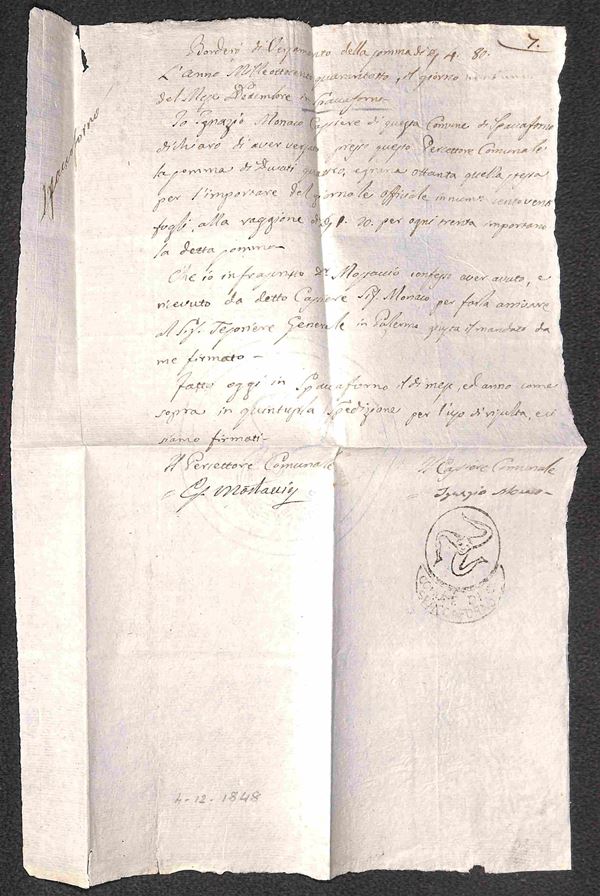 7.
Borderò di Versamento della somma di 4. 80.
L'anno Mille ottocento quarantotto, il giorno
del Mese Dicembre in Spaccaforno
Spaccaforno
Io Ignazio Monaco Cassiere di questa Comune di Spaccaforno
dichiaro di aver versato presso questo Percettore Comunale
la somma di Ducati quattro, e grana ottanta quella stessa
per l'importare del giornale officiale in num. centoventi
fogli, alla raggione di 1. 20. per ogni trenta importano
la detta somma
Che io infrascritto confesso aver avuto, e
ricevuto da detto Cassiere Sig. Monaco per farla arrivare
al Sig. Tesoriere Generale in Palermo giusta il mandato da
me firmato -
Fatto oggi in Spaccaforno il dì mese, ed anno come
sopra in quintupla spedizione per l'uso di risulta, e ci
siamo firmati -
Il Percettore Comunale
Il Cassiere Comunale
Ignazio Monaco
COMUNE DI
SPACCAFORNO
4-12-1848